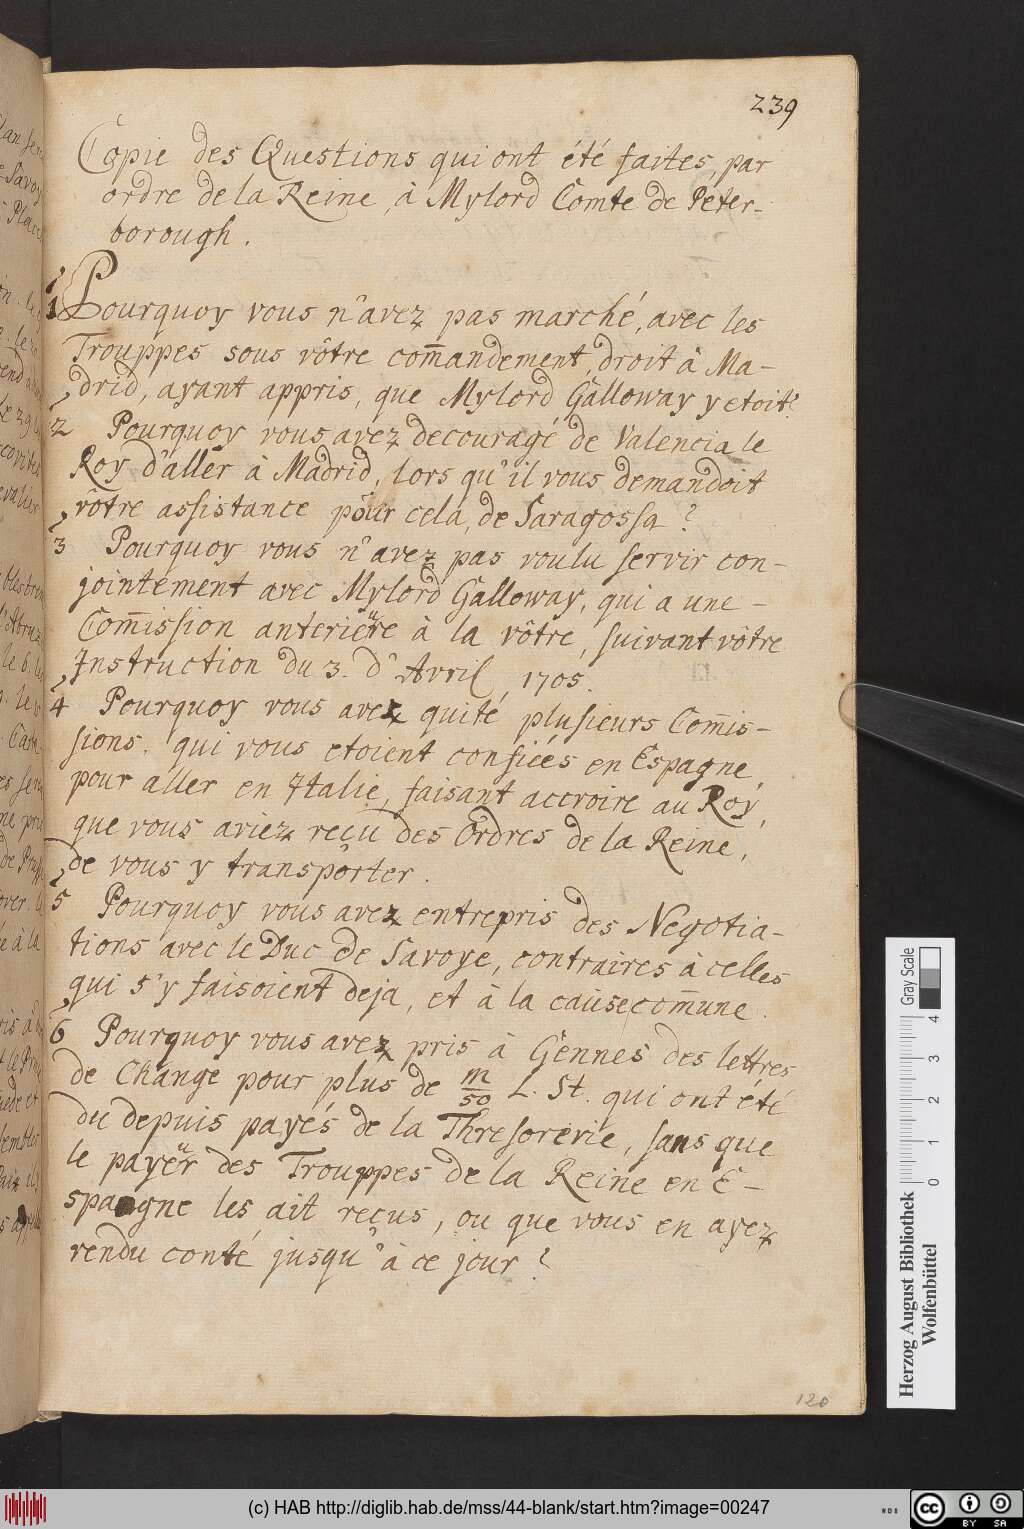 239
Copie des Questions qui ont été faites, par
ordre de la Reine, à Mylord Comte de Peter-
borough.
1 Pourquoy vous n'avez pas marché, avec les
Trouppes sous vôtre com̄andement, droit à Ma-
drid, ayant appris, que Mylord Galloway y etoit?
2 Pourquoy vous avez decouragé de Valencia le
Roy d'aller à Madrid, lors qu'il vous demandoit
vôtre assistance pour cela, de Saragossa?
3 Pourquoy vous n'avez pas voulu servir con-
jointement avec Mylord Galloway, qui a une
Com̄ission anterieure à la vôtre, suivant vôtre
Instruction du 3. d'Avril, 1705.
4 Pourquoy vous avez quité plusieurs Com̄is-
sions, qui vous etoient confiées en Espagne,
pour aller en Italie, faisant accroire au Roy,
que vous aviez reçu des Ordres de la Reine,
de vous y transporter.
5 Pourquoy vous avez entrepris des Negotia-
tions avec le Duc de Savoye, contraires à celles
qui s'y faisoient deja, et à la cause com̄une.
6 Pourquoy vous avez pris à Gennes des lettres
de Change pour plus de m/50 L. St. qui ont été
du depuis payés de la Thresorerie, sans que
le payeur des Trouppes de la Reine en E-
spagne les ait reçus, ou que vous en ayez
rendu conté jusqu'à ce jour?
120
Gray Scale
0 1 2 3 4
Herzog August Bibliothek
Wolfenbüttel
(c) HAB http://diglib.hab.de/mss/44-blank/start.htm?image=00247
WDB
CC BY SA